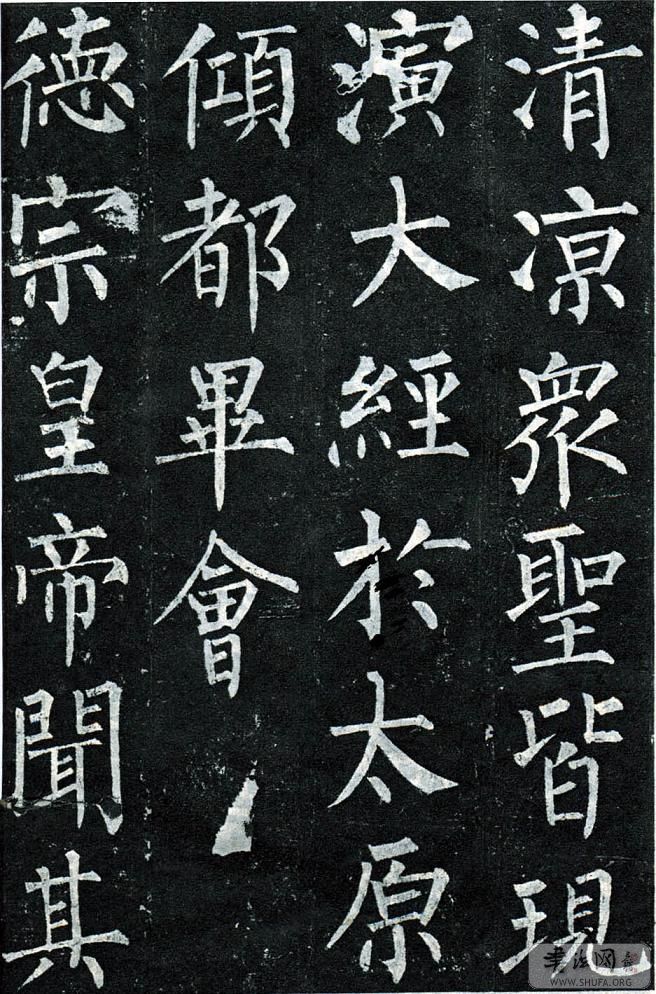 清涼眾聖皆現
演大經於太原
傾都畢會
德宗皇帝聞其
書法网
WWW.SHUFA.ORG